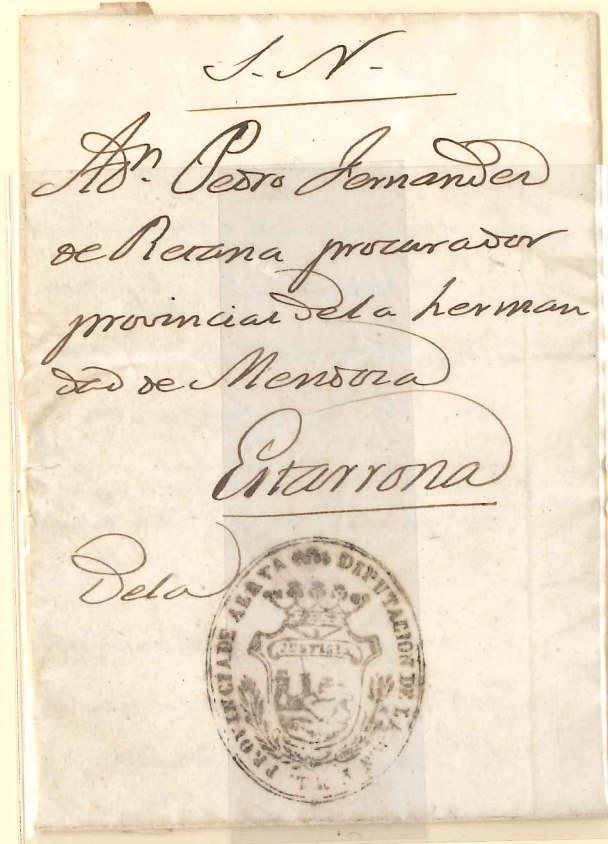 S. N.
A Dn. Pedro Fernandez
de Retana procurador
provincial dela herman
dad de Mendoza
Estarrona
Dela
DIPUTACION DE LA M.N. Y M.L. PROVINCIA DE ALAVA
JUSTICIA